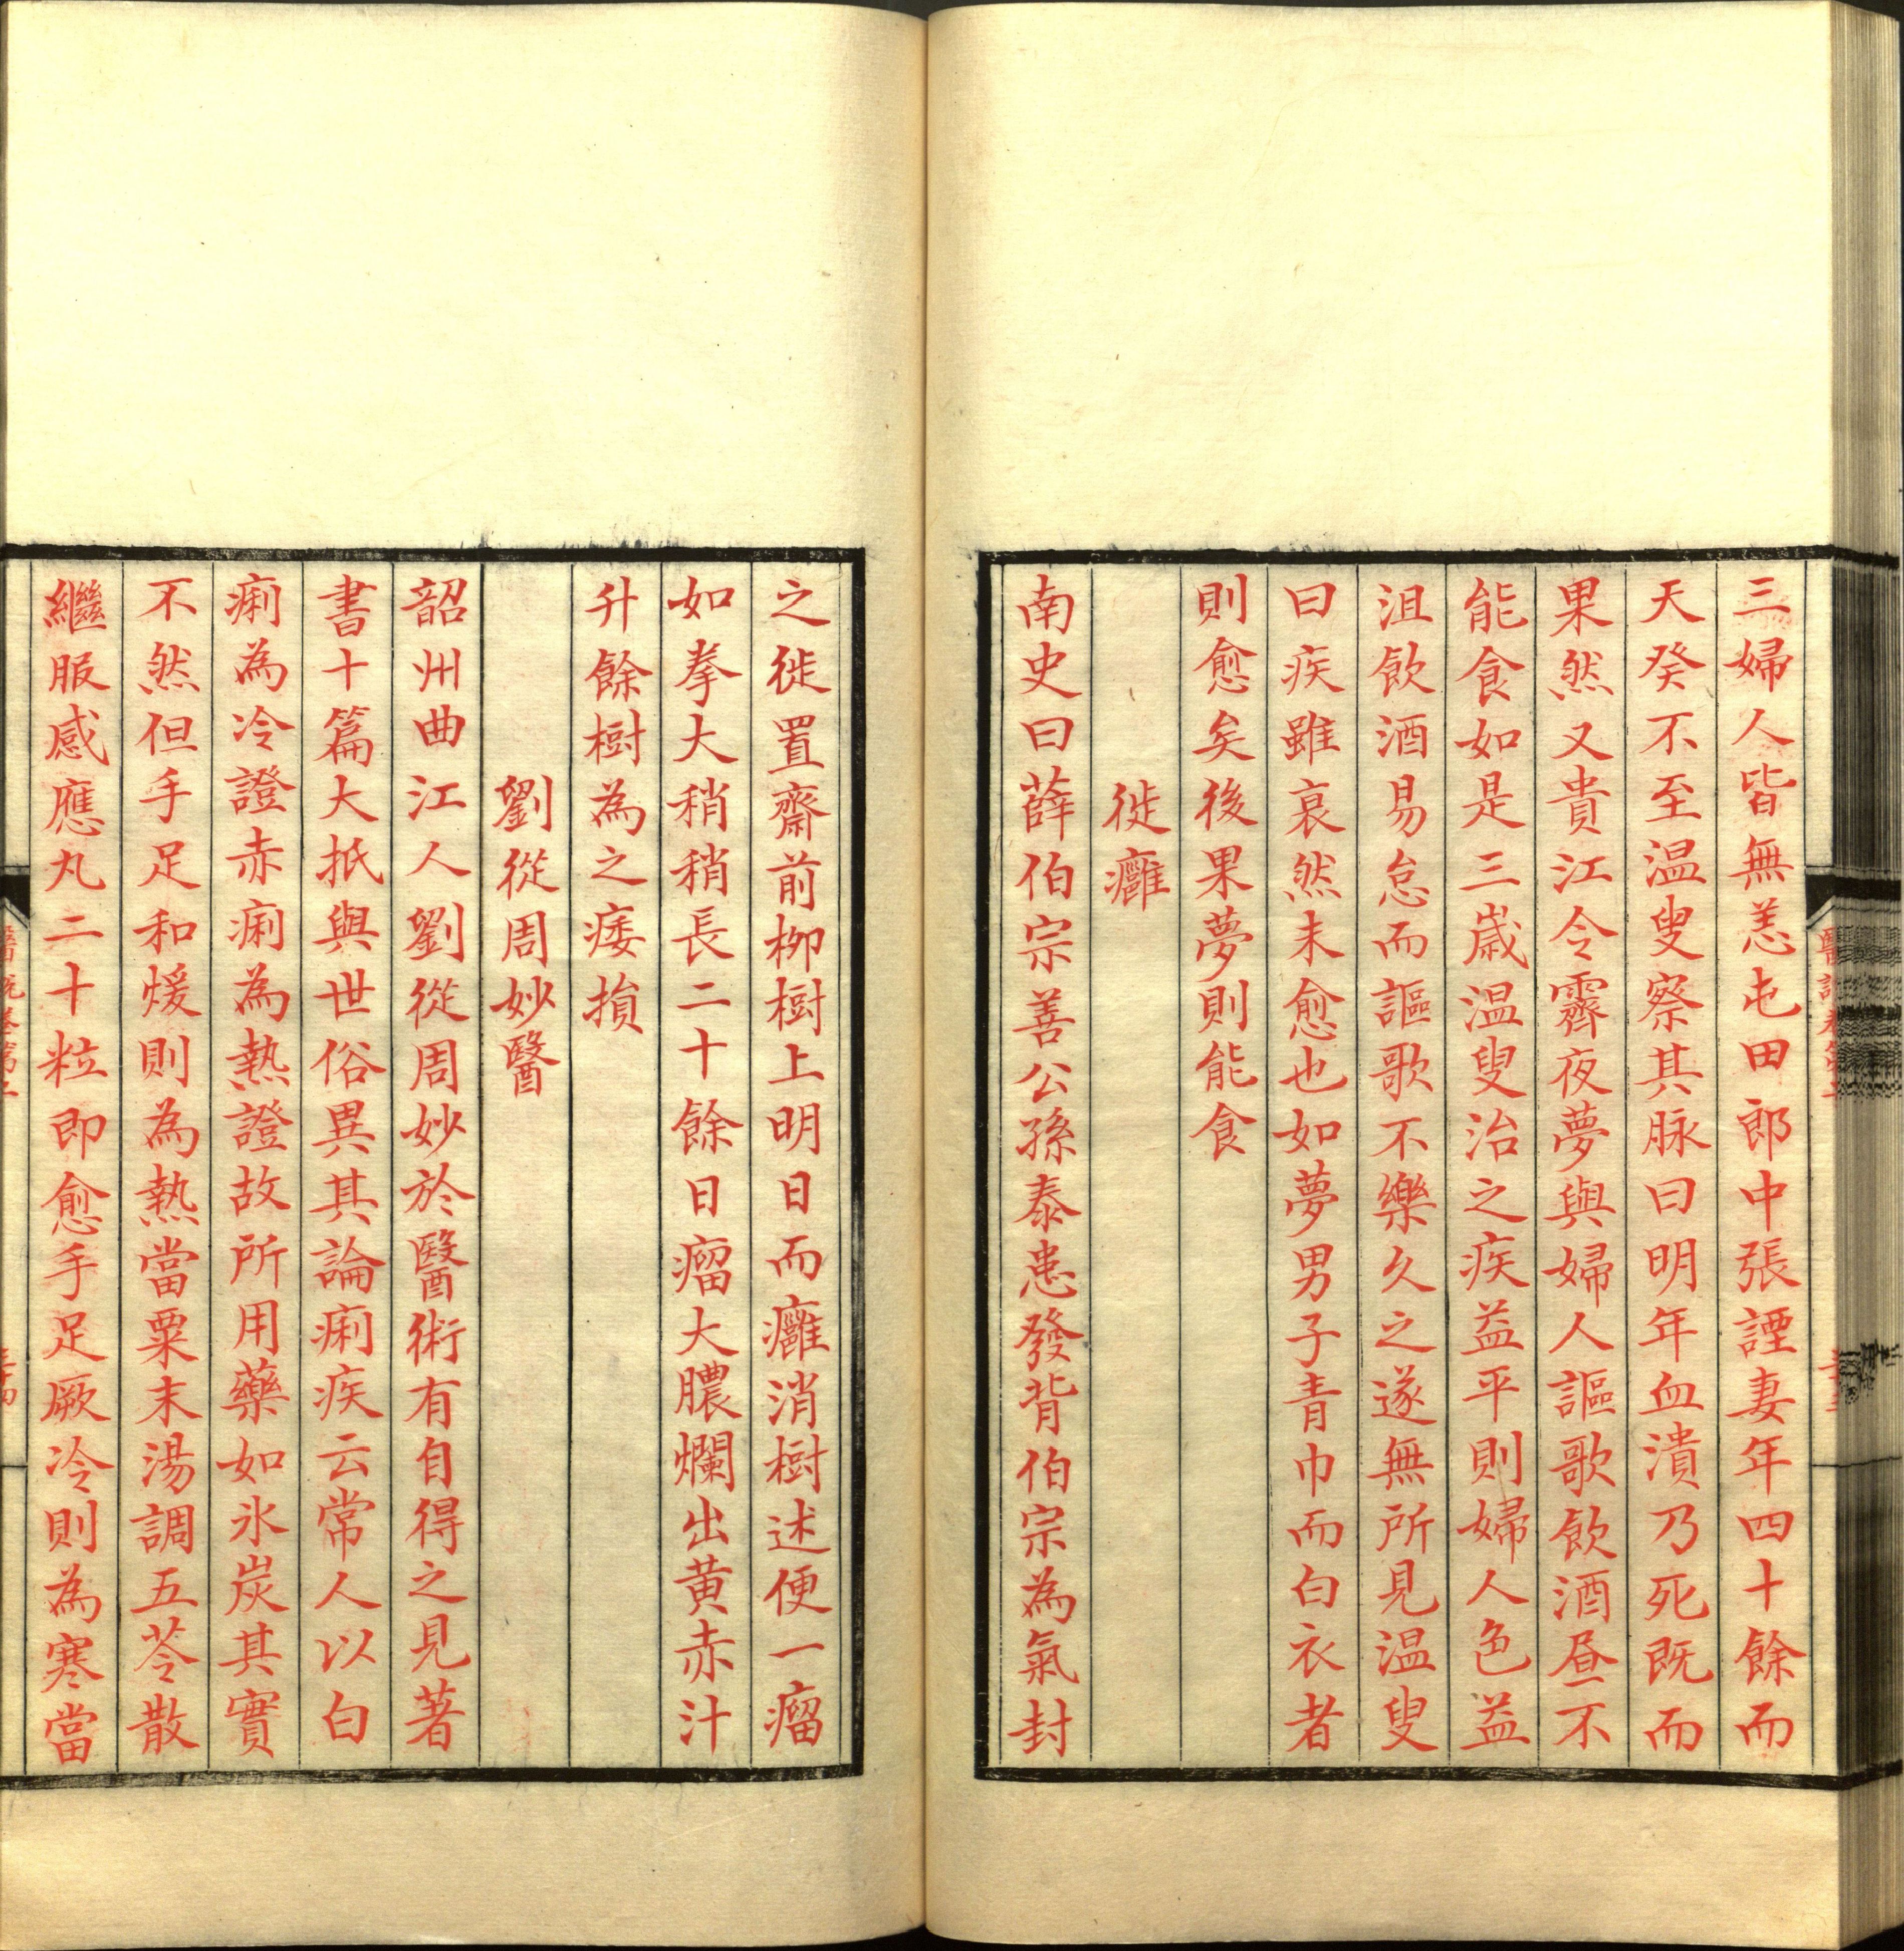 三婦人皆無恙屯田郎中張諲妻年四十餘而
天癸不至温叟察其脉曰明年血潰乃死既而
果然又貴江令霽夜夢與婦人謳歌飲酒昼不
能食如是三歳温叟治之疾益平則婦人色益
沮飲酒易怠而謳歌不樂久之遂無所見温叟
曰疾雖衰然未愈也如夢男子青巾而白衣者
則愈矣後果夢則能食
徙癰
南史曰薛伯宗善公孫泰患發背伯宗為氣封
之徙置齋前栁樹上明日而癰消樹述便一瘤
如拳大稍稍長二十餘日瘤大膿爛出黄赤汁
升餘樹為之痿損
劉從周妙醫
韶州曲江人劉從周妙於醫術有自得之見著
書十篇大抵與世俗異其論痢疾云常人以白
痢為冷證赤痢為熱證故所用藥如氷炭其實
不然但手足和煖則為熱當粟末湯調五苓散
繼服感應丸二十粒即愈手足厥冷則為寒當